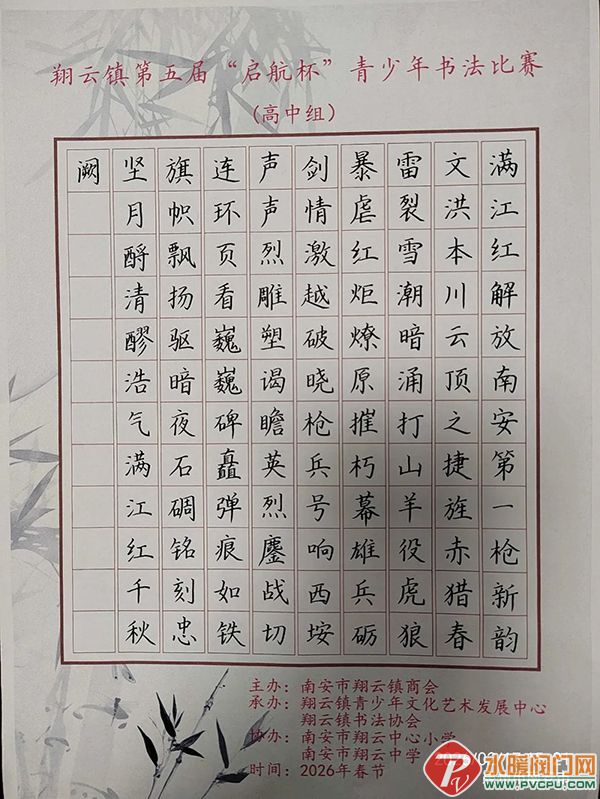 翔云镇第五届“启航杯”青少年书法比赛
(高中组)
满江红解放南安第一枪新韵
文洪本川云顶之捷旌赤猎春
雷裂雪潮暗涌打山羊役虎狼
暴虐红炬燎原摧朽幕雄兵砺
剑情激越破晓枪兵号响西垵
声声烈雕塑谒瞻英烈鏖战切
连环页看巍巍碑矗弹痕如铁
旗帜飘扬驱暗夜石碉铭刻忠
坚月酹清醪浩气满江红千秋
阙
主办：南安市翔云镇商会
承办：翔云镇青少年文化艺术发展中心
翔云镇书法协会
协办：南安市翔云中心小学
南安市翔云中学
时间：2026年春节
水暖阀门网
WWW.PVCPU.COM